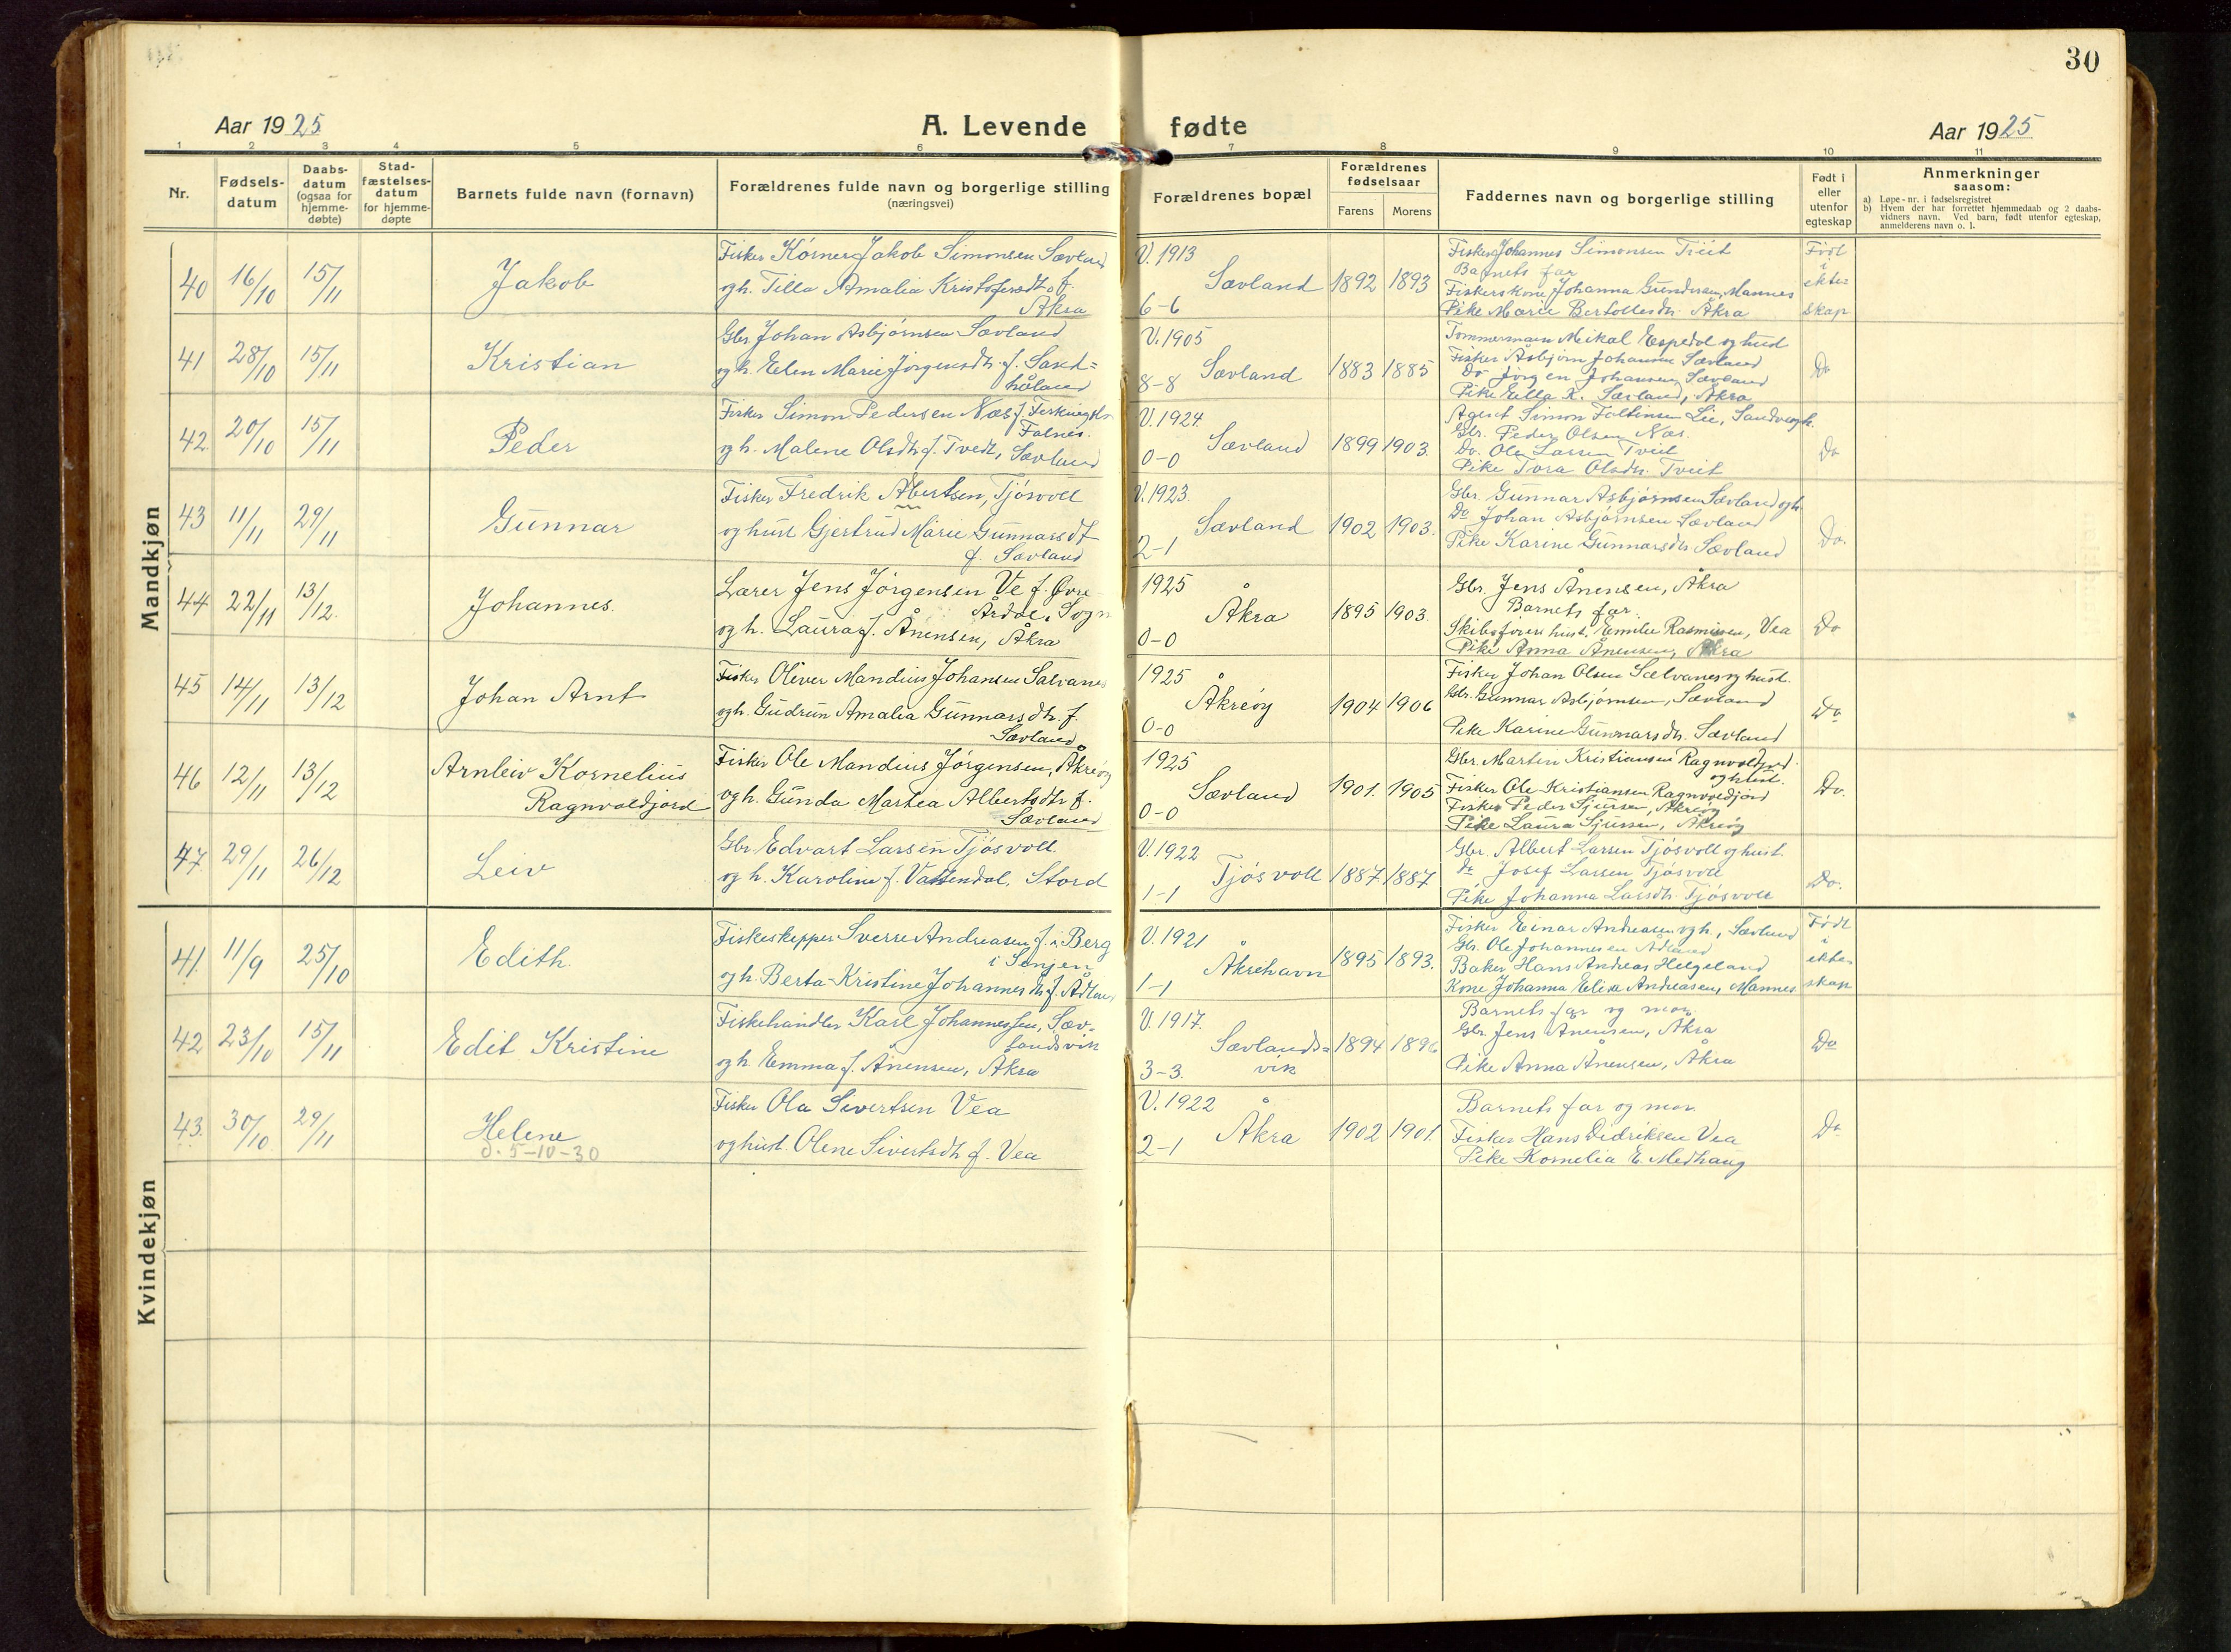 30
Aar 1925
A. Levende fødte
Aar 1925
1 2 3 4 5 6 7 8 9 10 11
Nr.
Fødsels-
datum
Daabs-
datum
(ogsaa for
hjemme-
døbte)
Stad-
fæstelses-
datum
for hjemme-
døpte
Barnets fulde navn (fornavn)
Forældrenes fulde navn og borgerlige stilling
(næringsvei)
Forældrenes bopæl
Forældrenes
fødselsaar
Farens Morens
Faddernes navn og borgerlige stilling
Født i
eller
utenfor
egteskap
Anmerkninger
saasom:
a) Løpe-nr. i fødselsregistret
b) Hvem der har forrettet hjemmedaab og 2 daabs-
vidners navn. Ved barn, født utenfor egteskap,
anmelderens navn o. l.
Mandkjøn
40 16/10 15/11 Jakob
Fisker Körner Jakob Simonsen Sævland
og h. Tilla Amalia Kristofersdt. f.
Åkra
V. 1913
Sævland 1892 1893
6-6
Fisker Johannes Simonsen Tveit
Barnets far
Fiskerkone Johanna Gundersen, Mannes
Pike Marie Bertollesdtr. Åkra
Født
i
ekte-
skap
41 28/10 15/11 Kristian
Gbr. Johan Asbjørnsen Sævland
og h. Elen Marie Jørgensdtr. f. Sand-
håland
V. 1905
Sævland 1883 1885
8-8
Tømmermann Mikal Espedal og hust
Fisker Asbjørn Johansen Sævland
Do Jørgen Johansen Sævland
Pike Ella K. Sævland, Åkra
Do
42 20/10 15/11 Peder
Fisker Simon Pedersen Næs f.
Falnes.
og h. Malene Olsdtr f. Tvedt, Sævland
V. 1924.
Sævland 1899 1903.
0-0
Agent Simon Foltinsen Lie,
Gbr. Peder Olsen Næs.
Do. Ola Larsen Tveit
Pike Tora Olsdtr. Tveit
Do
43 11/11 29/11 Gunnar
Fisker Fredrik Albertsen, Tjøsvoll
og hust Gjertrud Marie Gunnarsdt
f. Sævland
V. 1923.
Sævland 1902 1903.
2-1
Gbr. Gunnar Asbjørnsen Sævland og h.
Do Johan Asbjørnsen Sævland
Pike Karine Gunnarsdtr Sævland
Do.
44 22/11 13/12. Johannes.
Lærer Jens Jørgensen Ve f. Øvre
Årdal, Sogn
og h. Laura f. Ånensen, Åkra
1925
Åkra 1895 1903.
0-0
Gbr. Jens Ånensen, Åkra
Barnets far.
Skibsfører hust. Emilie Rasmussen, Vea
Pike Anna Ånensen, Åkra
Do
45 14/11 13/12 Johan Arnt
Fisker Oliver Mandius Johansen Salvanes
og h. Gudrun Amalia Gunnarsdtr. f.
Sævland
1925
Åkreøy 1904 1906
0-0
Fisker Johan Olsen Sælvanes og hust.
Gbr. Gunnar Asbjørnsen, Sævland
Pike Karine Gunnarsdtr. Sævland
Do
46 12/11 13/12 Arnleiv Kornelius
Ragnvaldjord
Fisker Ole Mandius Jørgensen, Åkreøy
og h. Gunda Martea Albertsdtr f.
Sævland
1925
Sævland 1901. 1905
0-0
Gbr. Martin Kristiansen Ragnvaldjord
og hust.
Fisker Ole Kristiansen Ragnvaldjord
Fisker Peder Sjursen, Åkreøy
Pike Laura Sjursen, Åkreøy
Do.
47 29/11 26/12 Leiv
Gbr Edvart Larsen Tjøsvoll.
og h. Karoline f. Vattendal, Stord
V. 1922
Tjøsvoll 1887 1887
1-1
Gbr. Albert Larsen Tjøsvoll og hust.
do Josef Larsen Tjøsvoll
Pike Johanna Larsdtr. Tjøsvoll
Do.
Kvindekjøn
41. 11/9 25/10 Edith.
Fiskeskipper Sverre Andreasen f. i Berg
i Senjen
og h. Berta Kristine Johannesdtr. f. Ådland
V. 1921
Åkrehavn 1895 1893.
1-1
Fisker Einar Andreasen og h., Sævland
Gbr. Ole Johannesen Ådland
Baker Hans Andreas Helgeland
Kone Johanna Elise Andreasen, Mannes
Født
i
ekte-
skap
42 23/10 15/11 Edit Kristine
Fiskehandler Karl Johannessen, Sæv-
landsvik
og h. Emma f. Ånensen, Åkra
V. 1917.
Sævlands-
vik 1894 1896
3-3.
Barnets far og mor.
Gbr. Jens Ånensen, Åkra
Pike Anna Ånensen, Åkra
Do
43. 30/10. 29/11 Helene
d. 5-10-30
Fisker Ola Sivertsen Vea
og hust. Olene Sivertsdtr f. Vea
V. 1922
Åkra 1902 1901.
2-1
Barnets far og mor.
Fisker Hans Didriksen Vea
Pike Kornelia E. Medhaug
Do